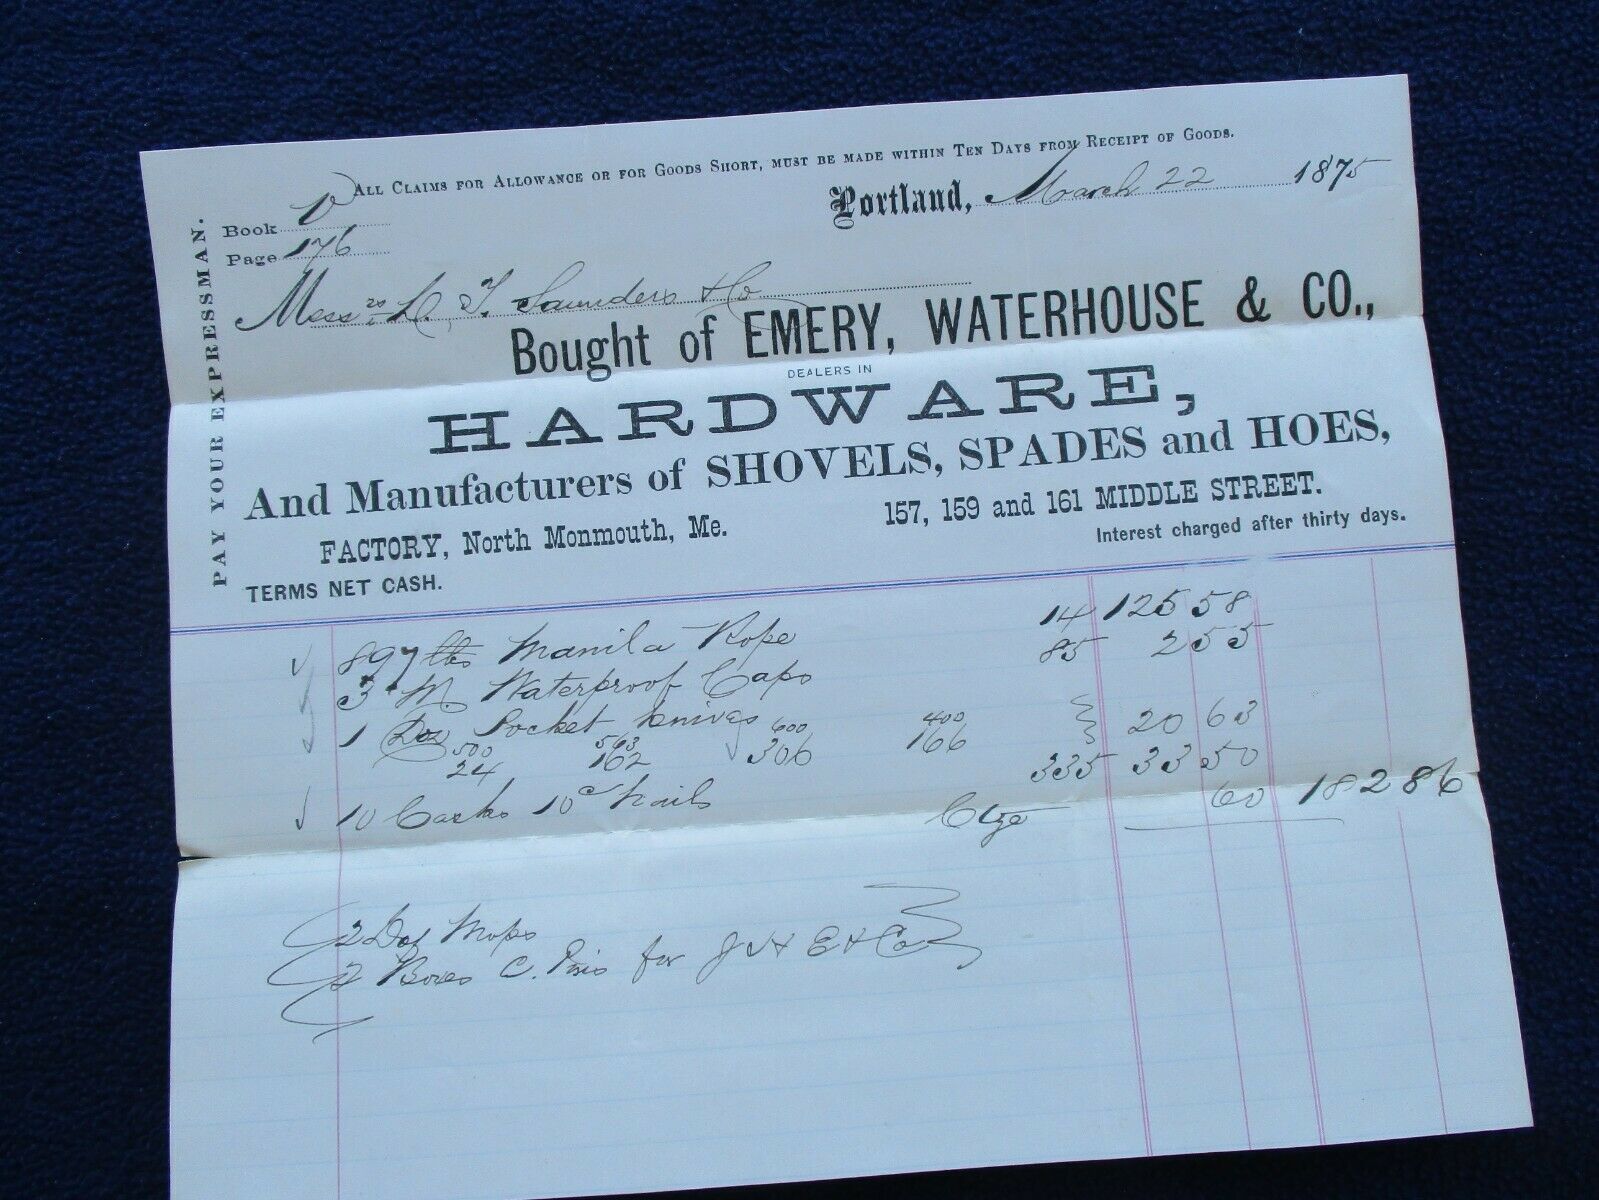 ALL CLAIMS FOR ALLOWANCE OR FOR GOODS SHORT, MUST BE MADE WITHIN TEN DAYS FROM RECEIPT OF GOODS.
Book
Page 176
Portland, March 22 1875
PAY YOUR EXPRESSMAN.
Messrs T. Saunders & Co
Bought of EMERY, WATERHOUSE & CO.,
DEALERS IN
HARDWARE,
And Manufacturers of SHOVELS, SPADES and HOES,
FACTORY, North Monmouth, Me. 157, 159 and 161 MIDDLE STREET.
TERMS NET CASH. Interest charged after thirty days.
897 lbs Manila Rope 14 125 58
3 M. Waterproof Caps 85 2 55
1 Doz Pocket Knives
500 563 600 400
24 162 306 166 20 63
10 Casks 10d Nails 335 33 50
Ctge 60 182 86
2 Doz Mops
2 Boxes C. Pins for J & Co